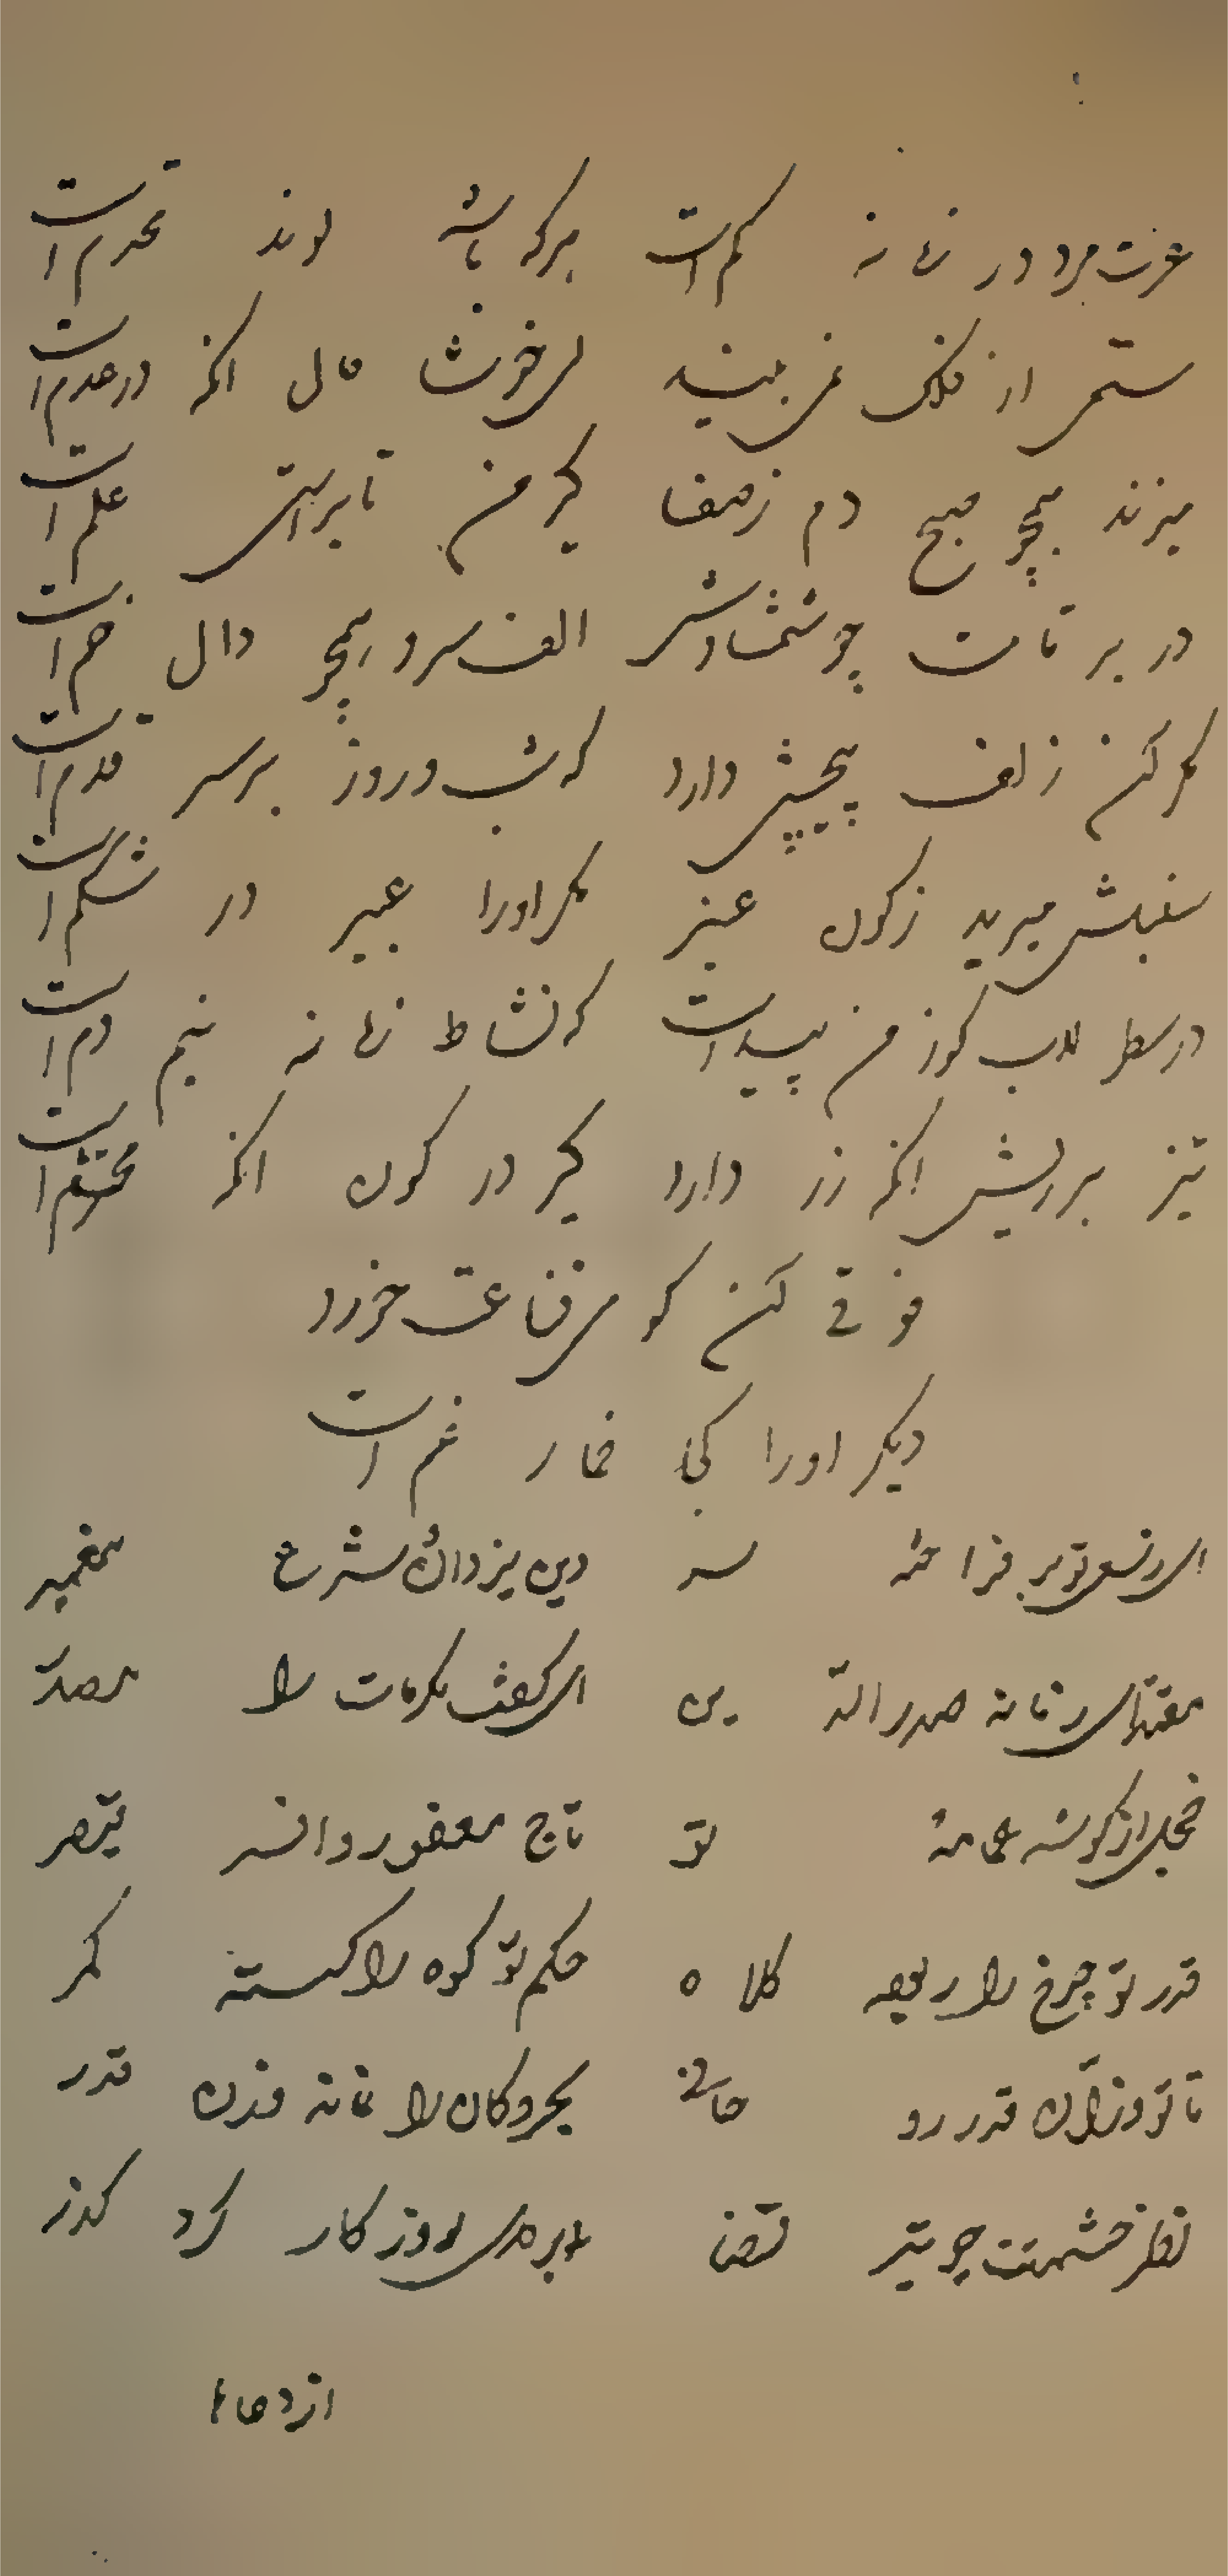 عزت مرد در زمانه کم است هرکه باشد لوند محترم است
ستمی از فلک نمی بیند ای خوشا حال انکه در عدم است
میزند همچو صبح دم ز صفا کیر من تا براستی علم است
در بر قامت چو شمشادش الف سرو همچو دال خم است
مکر کسم زلف پیچش دارد که شب و روز بر سر قدم است
سنبلش میرید ز کون عنبر مکر اورا عبیر در شکم است
در سطرلاب کوز من پیداست که نشاط زمانه نیم دم است
تیز بر ریش انکه زر دارد کیر در کون انکه محتشم است
فوقی کسم کو می قناعت خورد
دیکر اورا کجا خمار غم است
ای ز سعی تو بر فراخته سر دین یزدان و شرع پیغمبر
مقتدای زمانه صدر الدین ای کفت مکرمات را مصدر
خجل از کوشه عمامه تو تاج فغفور و افسر قیصر
قدر تو چرخ را ربوده کلاه حکم تو کوه را کسسته کمر
تا تو وزان قدر رو بحر و کان را نمانه قدر
نظر خشمت چو تیر قضا روزکار کرد کذر
از دعا